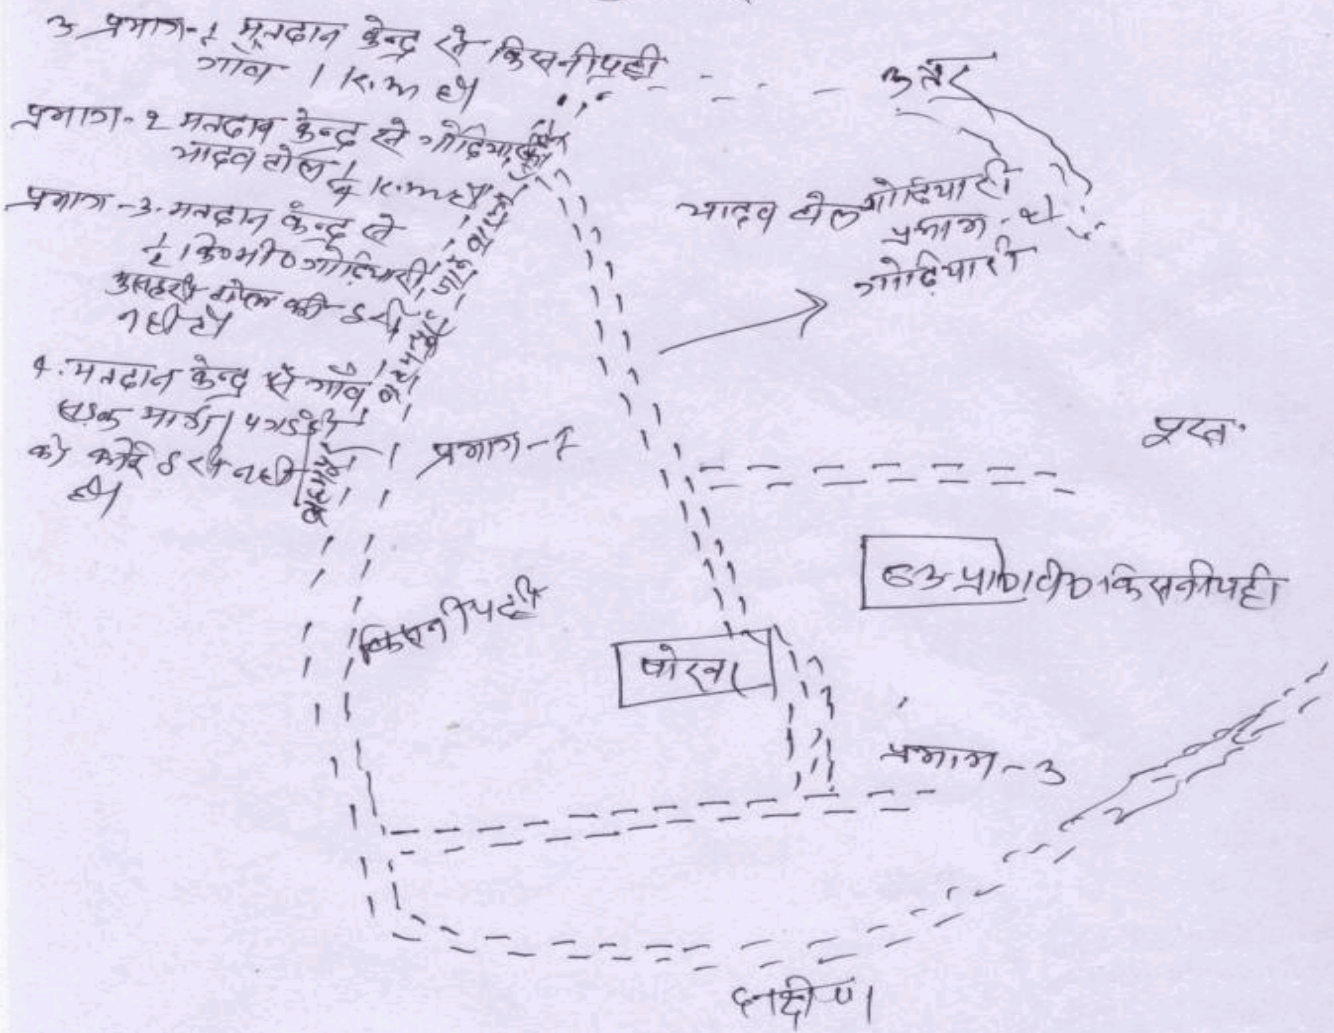 3 प्रभाग-1 मतदान केन्द्र से किसनीपट्टी
गाँव 1 K.m है।
प्रभाग-2 मतदान केन्द्र से गोढियारी
यादव टोल 1/4 K.m है।
प्रभाग-3. मतदान केन्द्र से
1/2 कि०मी० गोढियारी
मुसहरी टोल की दूरी
नही है।
4. मतदान केन्द्र से गाँव
सड़क मार्ग / पगडंडी
को कोई नही
है।
उत्तर
यादव टोल गोढियारी
प्रभाग-2
गोढियारी
प्रभाग-1
पुरब
उ प्रा०वि० किसनीपट्टी
किसनीपट्टी
पोखर
प्रभाग-3
दक्षीण